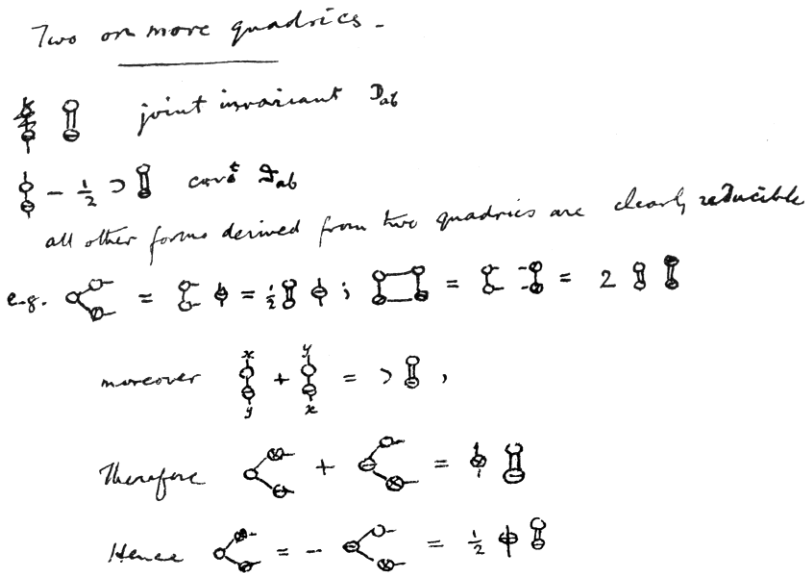 Two or more quadrics -
joint invariant D_ab
- 1/2 cov^t ϑ_ab
all other forms derived from two quadrics are clearly reducible
e.g. = = 1/2 ; = = 2
moreover x y + y x = ,
Therefore + =
Hence = - = 1/2